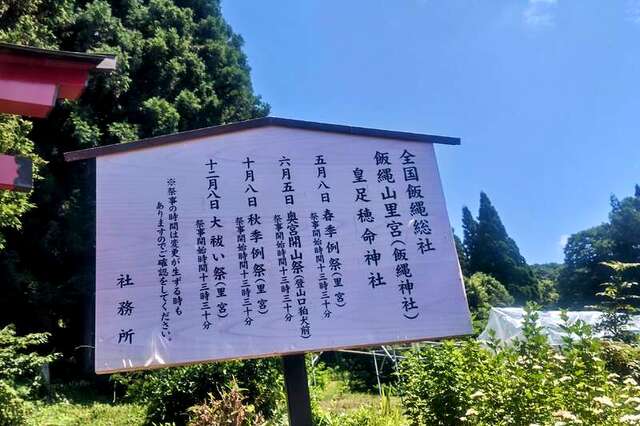 全国飯縄総社
飯縄山里宮(飯縄神社)
皇足穂命神社
五月八日 春季例祭(里宮)
祭事開始時間十三時三十分
六月五日 奥宮開山祭(登山口狛犬前)
祭事開始時間十二時三十分
十月八日 秋季例祭(里宮)
祭事開始時間十三時三十分
十二月八日 大祓い祭(里宮)
祭事開始時間十三時三十分
※祭事の時間は変更が生ずる時も
ありますのでご確認をしてください。
社務所